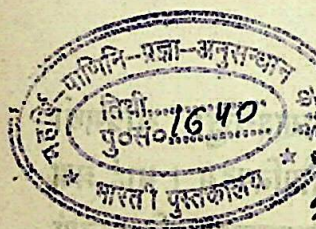 महर्षि-पाणिनि-प्रज्ञा-अनुसन्धान
तिथी..............
पु०सं०1640..........
* भारती पुस्तकालय *